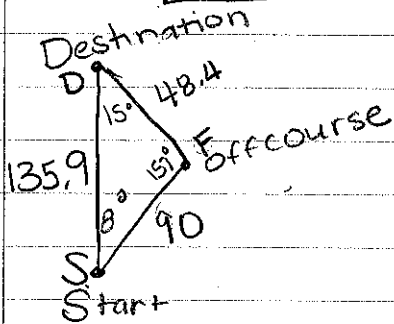 Destination
D
15°
48.4
F
Offcourse
157°
135.9
8°
90
S
Start